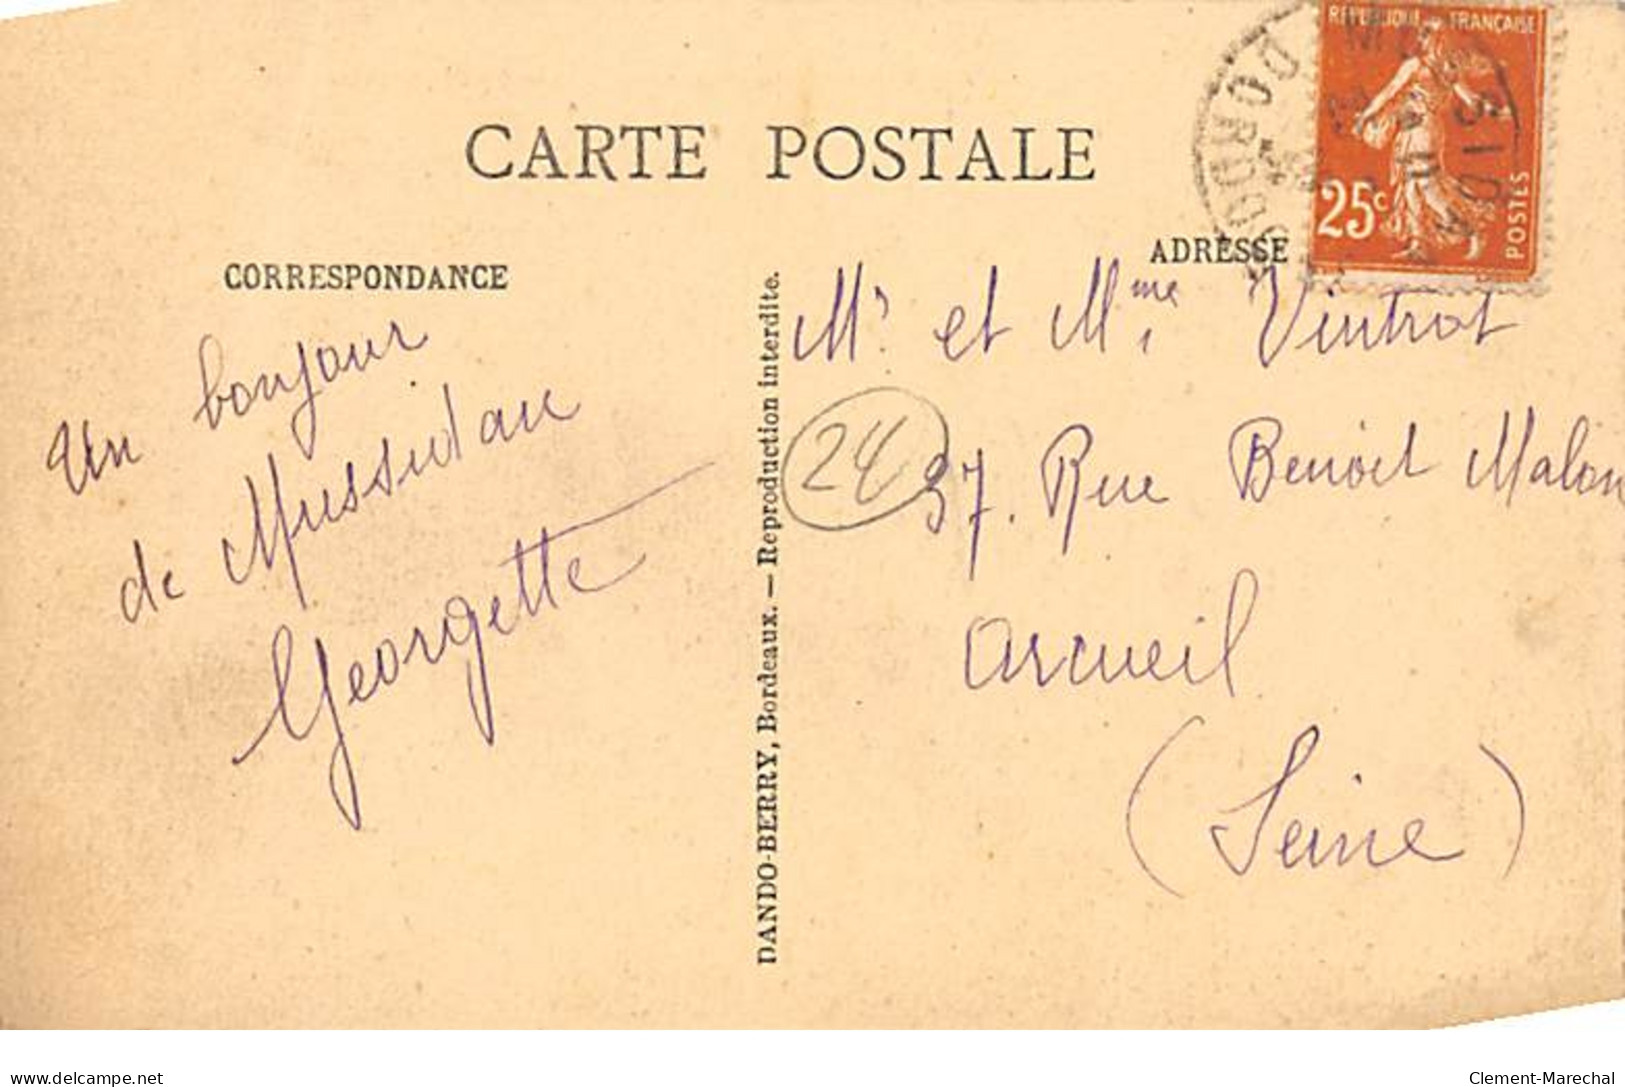 CARTE POSTALE
CORRESPONDANCE
ADRESSE
RÉPUBLIQUE FRANÇAISE
25c
POSTES
DORDOGNE
Un bonjour
de Mussidan
Georgette
DANDO-BERRY, Bordeaux. — Reproduction interdite.
Mr et Mme Vintrot
24
37. Rue Benoit Malon
Arcueil
(Seine)
delcampe.net
Clement-Marechal